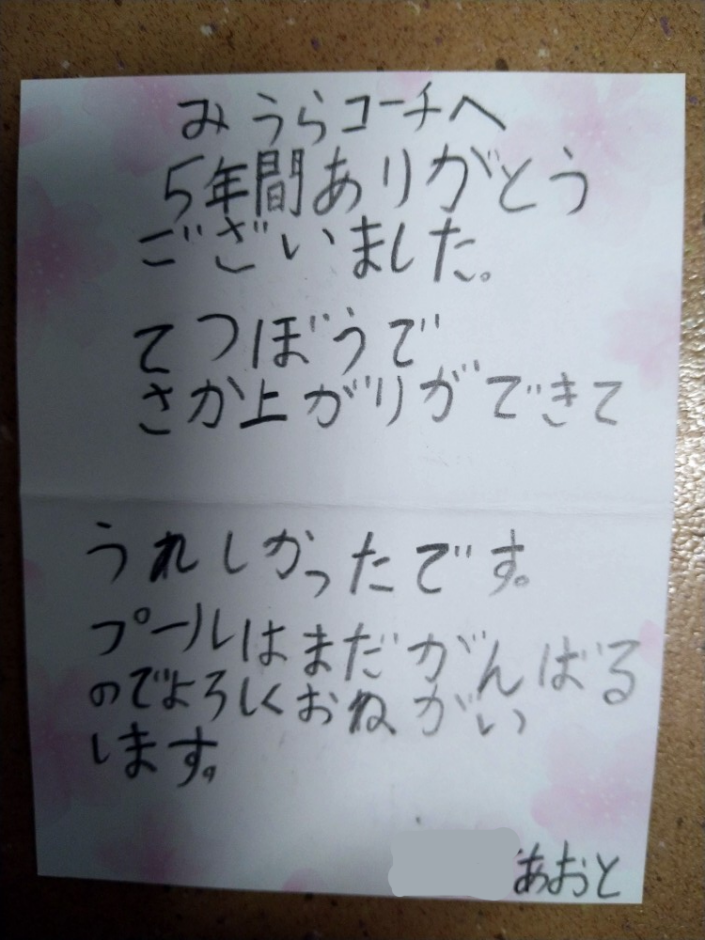 みうらコーチへ
5年間ありがとう
ございました。
てつぼうで
さか上がりができて
うれしかったです。
プールはまだがんばる
のでよろしくおねがい
します。
あおと